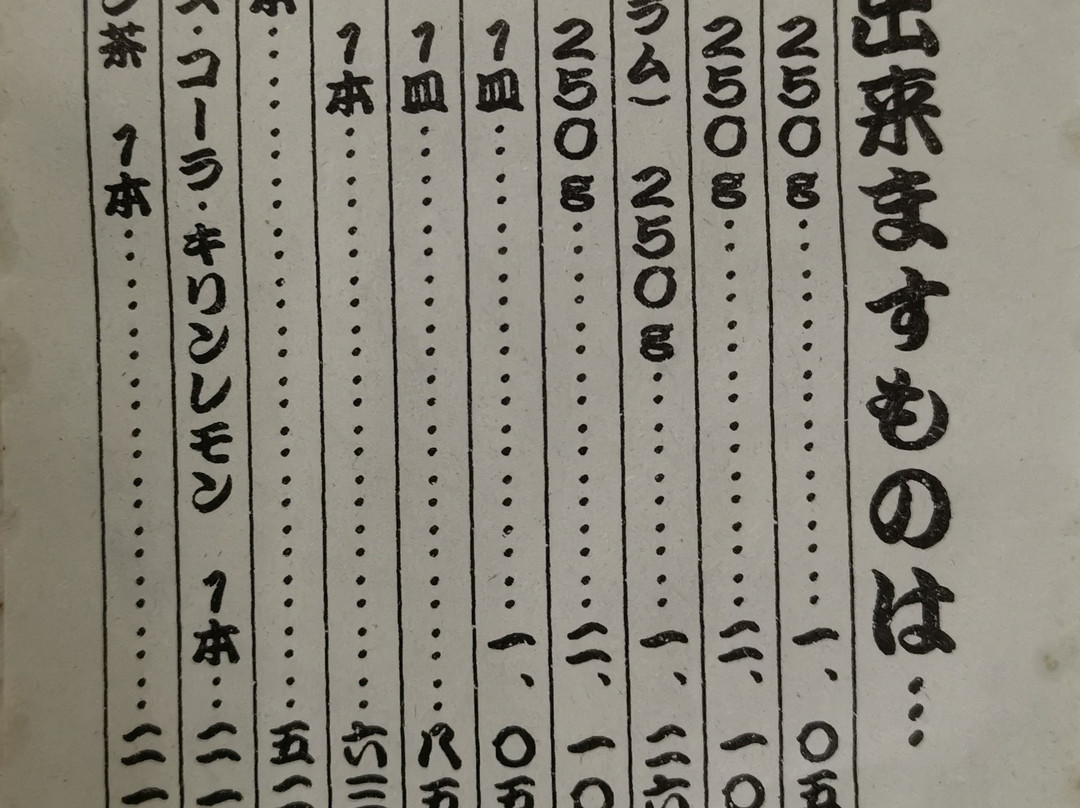 出来ますものは…
250g……………一、〇五
250g……………二、一〇
ラム) 250g…………一、二六
250g……………二、一〇
1皿………………一、〇五
1皿………………八五
1本………………六三
本………………五二
ス・コーラ・キリンレモン 1本…二一
茶 1本………………二一